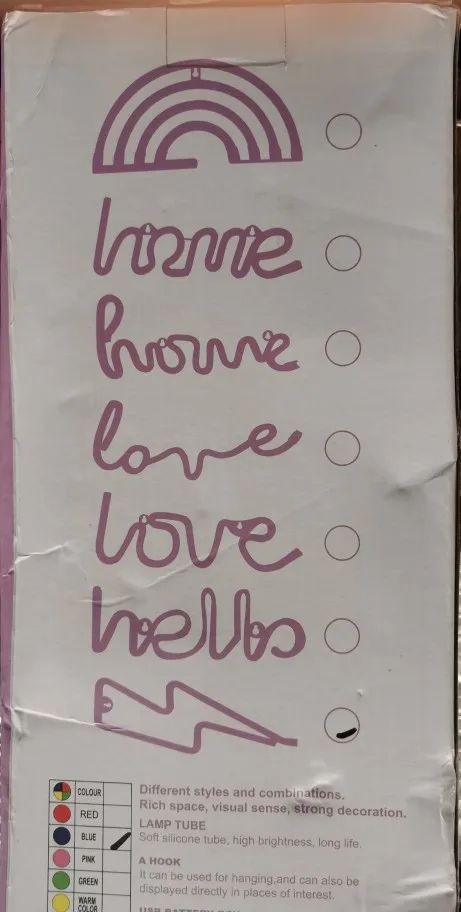 home
home
love
love
hello
COLOUR
RED
BLUE
PINK
GREEN
WARM
COLOR
Different styles and combinations.
Rich space, visual sense, strong decoration.
LAMP TUBE
Soft silicone tube, high brightness, long life.
A HOOK
It can be used for hanging,and can also be
displayed directly in places of interest.